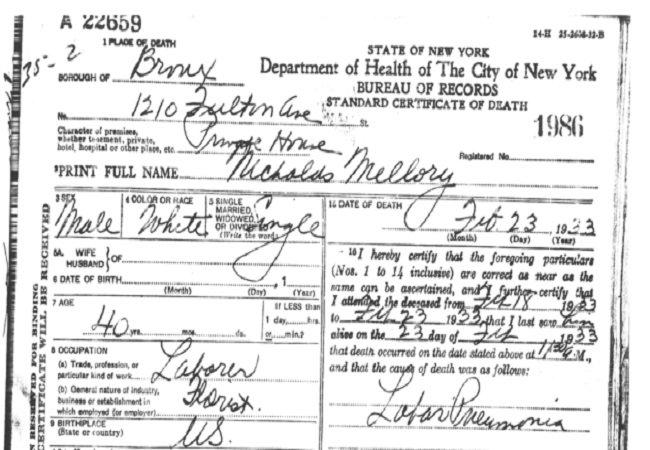 A 22659
14-H 25-2638-32-B
1 PLACE OF DEATH
STATE OF NEW YORK
35-2
BOROUGH OF Bronx
Department of Health of The City of New York
BUREAU OF RECORDS
No. 1210 Fulton Ave St.
STANDARD CERTIFICATE OF DEATH
Character of premises,
whether tenement, private,
hotel, hospital or other place, etc. Private House
1986
Registered No.
PRINT FULL NAME Nicholas Mellory
3 SEX
Male
4 COLOR OR RACE
White
5 SINGLE
MARRIED,
WIDOWED,
OR DIVORCED
(Write the word)
Single
15 DATE OF DEATH
Feb. 23 1933
(Month) (Day) (Year)
5A WIFE
HUSBAND } OF
6 DATE OF BIRTH , 1
(Month) (Day) (Year)
7 AGE
40 yrs. mos. ds.
If LESS than
1 day, hrs.
or min.?
8 OCCUPATION
(a) Trade, profession, or
particular kind of work Laborer
(b) General nature of industry,
business or establishment in
which employed (or employer) Florist.
9 BIRTHPLACE
(State or country) U.S.
16 I hereby certify that the foregoing particulars
(Nos. 1 to 14 inclusive) are correct as near as the
same can be ascertained, and I further certify that
I attended the deceased from Feb 18 1933
to Feb 23 1933, that I last saw him
alive on the 23 day of Feb 1933
that death occurred on the date stated above at M.,
and that the cause of death was as follows:
Lobar Pneumonia
RESERVED FOR BINDING
CERTIFICATE WILL BE RECEIVED